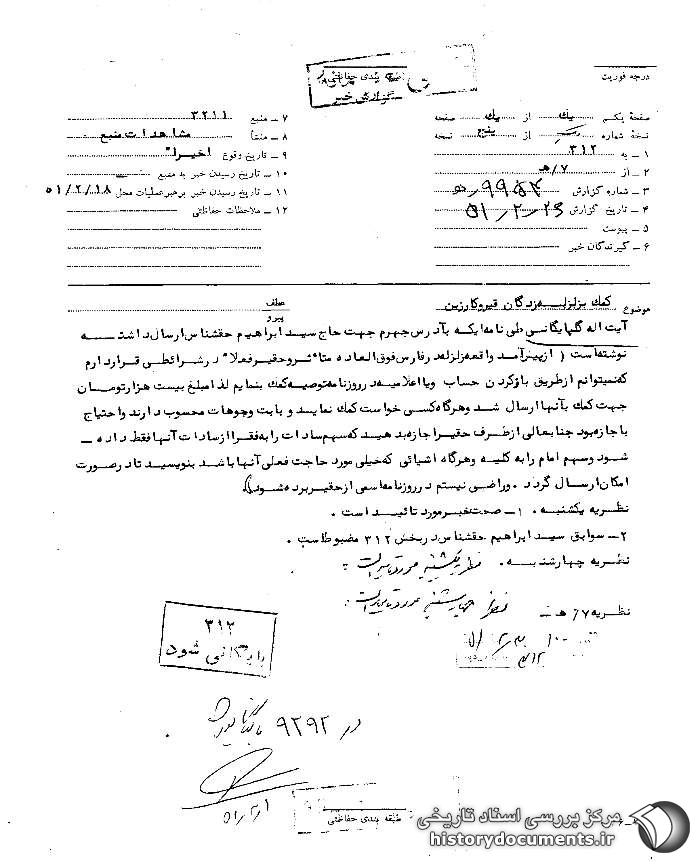 درجه فوریت
طبقه بندی حفاظتی
گزارش خبر
صفحه یکم یک از یک صفحه
نسخه شماره از پنج نسخه
۱ - به ۳۱۲
۲ - از ۷/ ه
۳ - شماره گزارش ۹۹۵۴/ ه
۴ - تاریخ گزارش ۵۱/۲/۲۶
۵ - پیوست
۶ - گیرندگان خبر
۷ - منبع ۳۲۱۱
۸ - منشأ مشاهدات منبع
۹ - تاریخ وقوع اخیرا"
۱۰ - تاریخ رسیدن خبر به منبع
۱۱ - تاریخ رسیدن خبر برهبر عملیات محل ۵۱/۲/۱۸
۱۲ - ملاحظات حفاظتی
موضوع کمك بزلزله زدگان قیروکارزین
عطف
پیرو
آیت اله گلپایگانی طی نامه ایکه بآدرس جهرم جهت حاج سید ابراهیم حقشناس ارسال داشته
نوشته است ( از پیش آمد واقعه زلزله در فارس فوق العاده متاثر و حقیر فعلا" در شرائطی قرار دارم
که نمیتوانم از طریق باز کردن حساب ویا اعلامیه در روزنامه توصیه کمك بنمایم لذا مبلغ بیست هزار تومان
جهت کمك بآنها ارسال شد و هرگاه کسی خواست کمك نماید و بابت وجوهات محسوب دارند واحتیاج
با جازه بود جنابعالی از طرف حقیر اجازه بدهید که سهم سادات را به فقرا از سادات آنها فقط داده –
شود وسهم امام را به کلیه و هرگاه اشیائی که خیلی مورد حاجت فعلی آنها باشد بنویسید تا در صورت
امکان ارسال گردد . و راضی نیستم در روزنامه اسمی از حقیر برده شود )
نظریه یکشنبه . ۱ - صحت خبر مورد تائید است .
۲ - سوابق سید ابراهیم حقشناس در بخش ۳۱۲ مضبوط است .
نظریه چهارشنبه . نظریه یکشنبه مورد تایید است
نظریه ۷/ ه – نظریه چهارشنبه مورد تایید است
۳۱۲
بایگانی شود
در ۹۲۹۲ بایگانی شود
طبقه بندی حفاظتی
مرکز بررسی اسناد تاریخی
historydocuments.ir